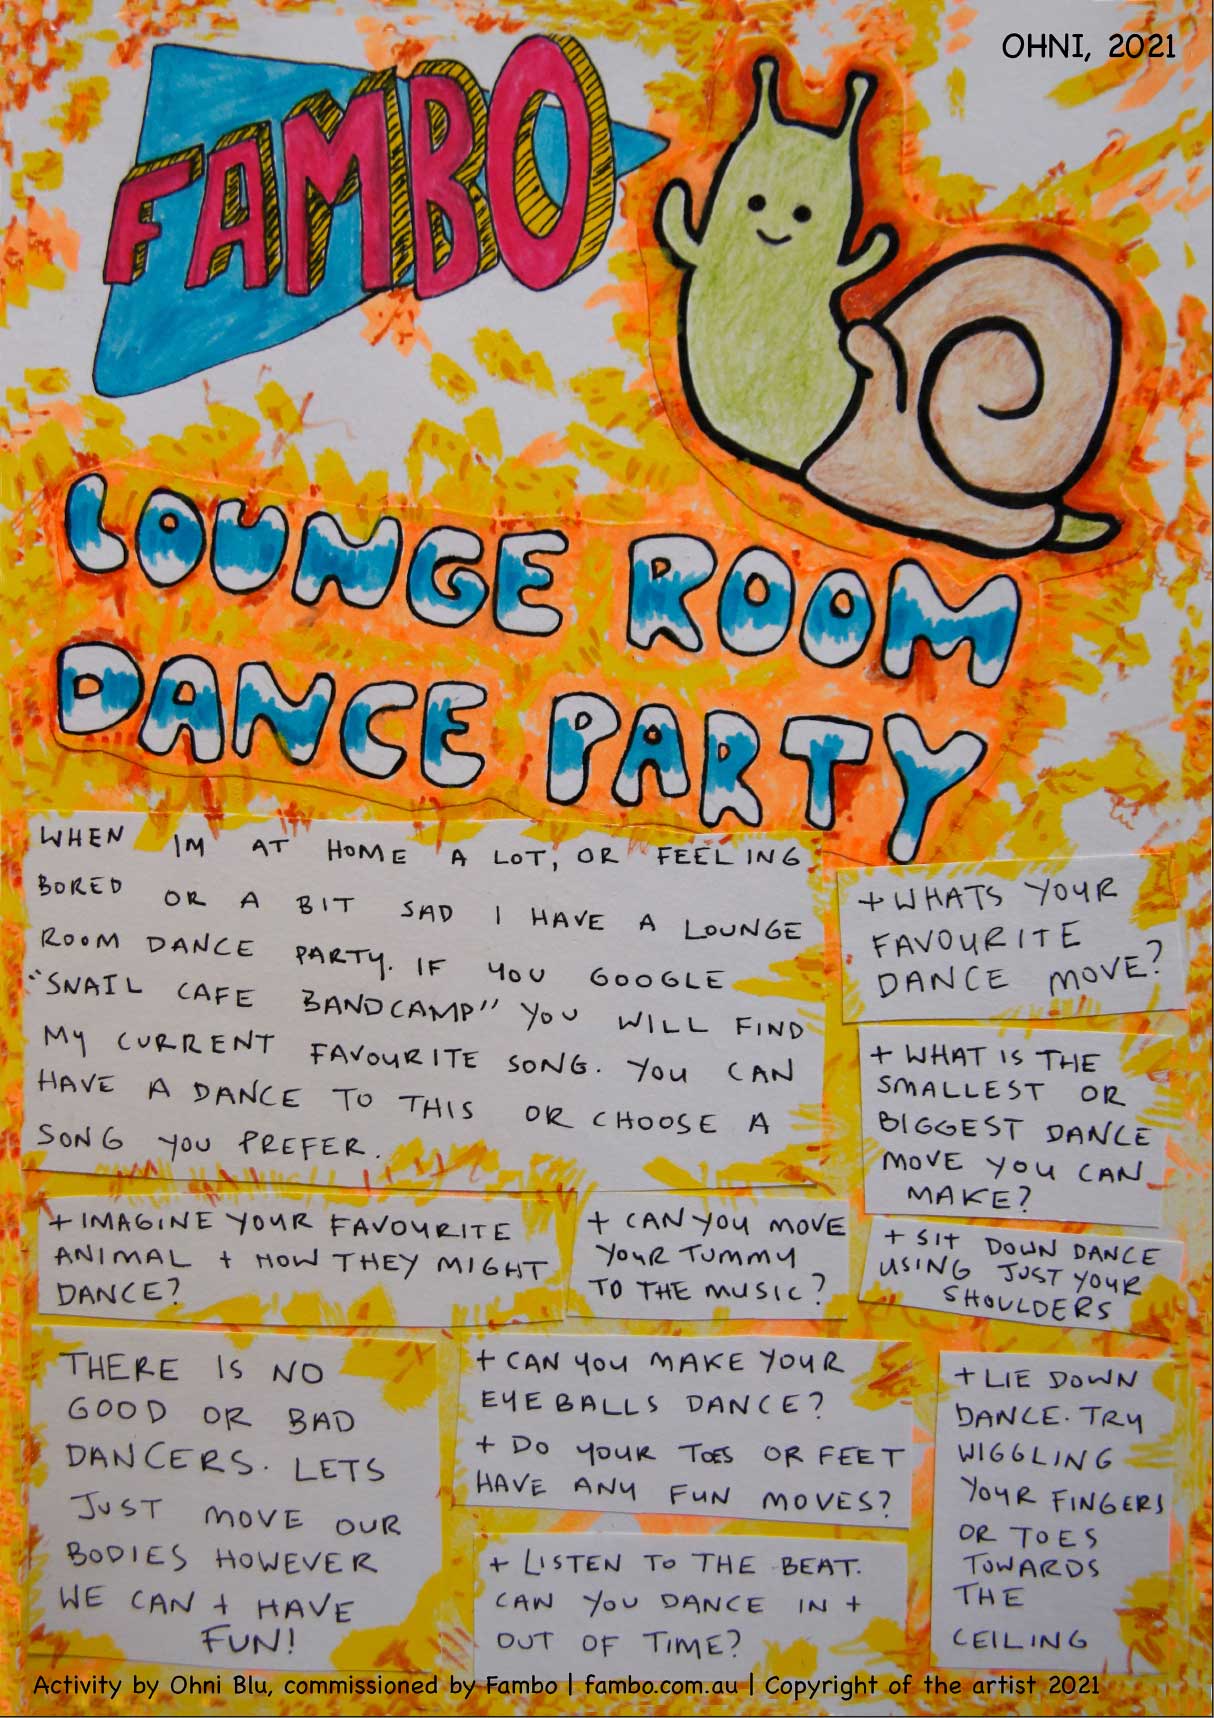 OHNI, 2021
FAMBO
LOUNGE ROOM
DANCE PARTY
WHEN IM AT HOME A LOT, OR FEELING
BORED OR A BIT SAD I HAVE A LOUNGE
ROOM DANCE PARTY. IF YOU GOOGLE
"SNAIL CAFE BANDCAMP" YOU WILL FIND
MY CURRENT FAVOURITE SONG. YOU CAN
HAVE A DANCE TO THIS OR CHOOSE A
SONG YOU PREFER.
+ WHATS YOUR
FAVOURITE
DANCE MOVE?
+ WHAT IS THE
SMALLEST OR
BIGGEST DANCE
MOVE YOU CAN
MAKE?
+ IMAGINE YOUR FAVOURITE
ANIMAL + HOW THEY MIGHT
DANCE?
+ CAN YOU MOVE
YOUR TUMMY
TO THE MUSIC?
+ SIT DOWN DANCE
USING JUST YOUR
SHOULDERS
THERE IS NO
GOOD OR BAD
DANCERS. LETS
JUST MOVE OUR
BODIES HOWEVER
WE CAN + HAVE
FUN!
+ CAN YOU MAKE YOUR
EYEBALLS DANCE?
+ DO YOUR TOES OR FEET
HAVE ANY FUN MOVES?
+ LISTEN TO THE BEAT.
CAN YOU DANCE IN +
OUT OF TIME?
+ LIE DOWN
DANCE. TRY
WIGGLING
YOUR FINGERS
OR TOES
TOWARDS
THE
CEILING
Activity by Ohni Blu, commissioned by Fambo | fambo.com.au | Copyright of the artist 2021